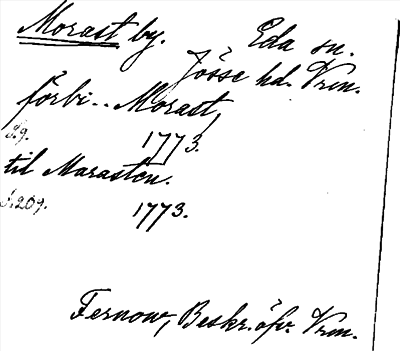 Morast by. Eda sn.
Jösse hd. Vrm.
förbi .. Morast,
S.9. 1773.
til Marasten.
S.209. 1773.
Fernow, Beskr. öfv. Vrm.